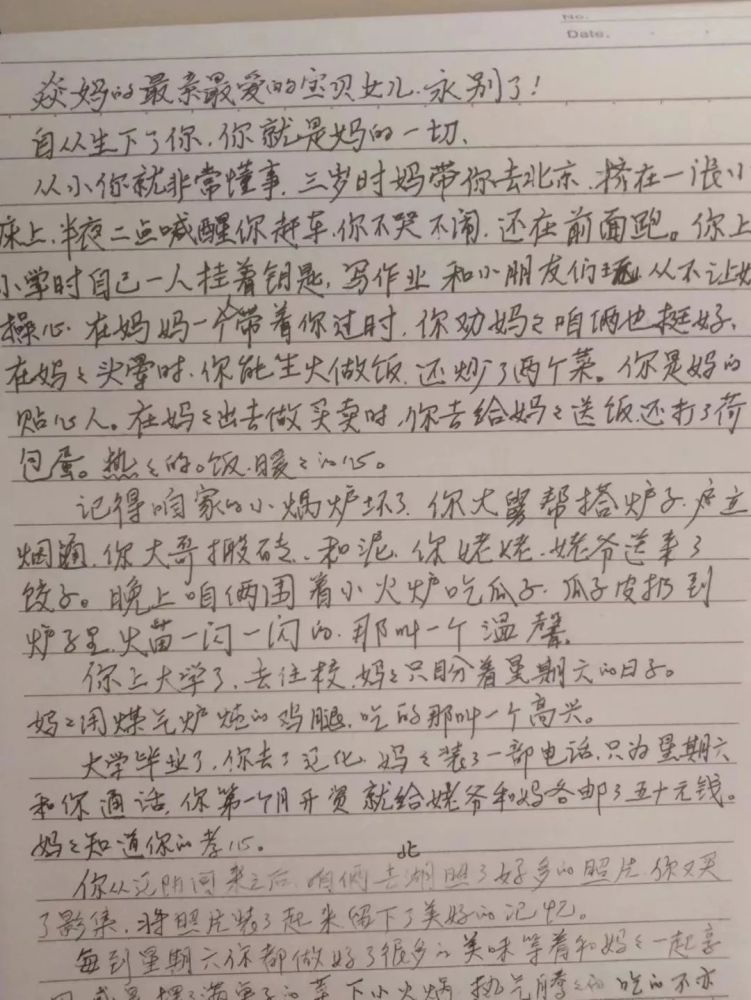 No.
Date.
焱妈的最亲最爱的宝贝女儿.永别了!
自从生下了你.你就是妈的一切.
从小你就非常懂事.三岁时妈带你去北京.挤在一张小
床上.半夜二点喊醒你赶车.你不哭不闹.还在前面跑。你上
小学时自己一人挂着钥匙.写作业 和小朋友们玩 从不让妈
操心.在妈妈一个带着你过时.你劝妈々咱俩也挺好.
在妈々头晕时.你能生火做饭.还炒了两个菜。你是妈的
贴心人。在妈々出去做买卖时.你去给妈々送饭.还打了荷
包蛋。热々的饭.暖々的心。
记得咱家的小锅炉坏了.你大舅帮搭炉子.立
烟筒.你大哥搬砖.和泥.你姥姥.姥爷送来了
饺子。晚上咱俩围着小火炉吃瓜子.瓜子皮扔到
炉子里 火苗一闪一闪的.那叫一个温馨.
你上大学了.去住校.妈々只盼着星期六的日子。
妈々用煤气炉炖的鸡腿.吃的那叫一个高兴。
大学毕业了.你去了辽化.妈々装了一部电话.只为星期六
和你通话.你第一个月开资 就给姥爷和妈各邮了五十元钱。
妈々知道你的孝心。
你从辽阳回来之后.咱俩去北湖照了好多的照片.你又买
了影集.将照片装了起来留下了美好的记忆.
每到星期六你都做好了很多的美味等着和妈々一起享
满桌子的菜 下小火锅.热气腾々的 吃的不亦